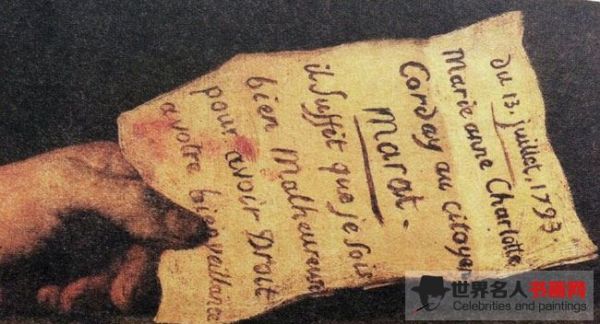 du 13. juillet, 1793.
Marieanne Charlotte
Corday au citoyen
Marat.
il suffit que je sois
bien Malheureuse
pour avoir Droit
a votre bienveillance
世界名人书籍网
Celebrities and paintings